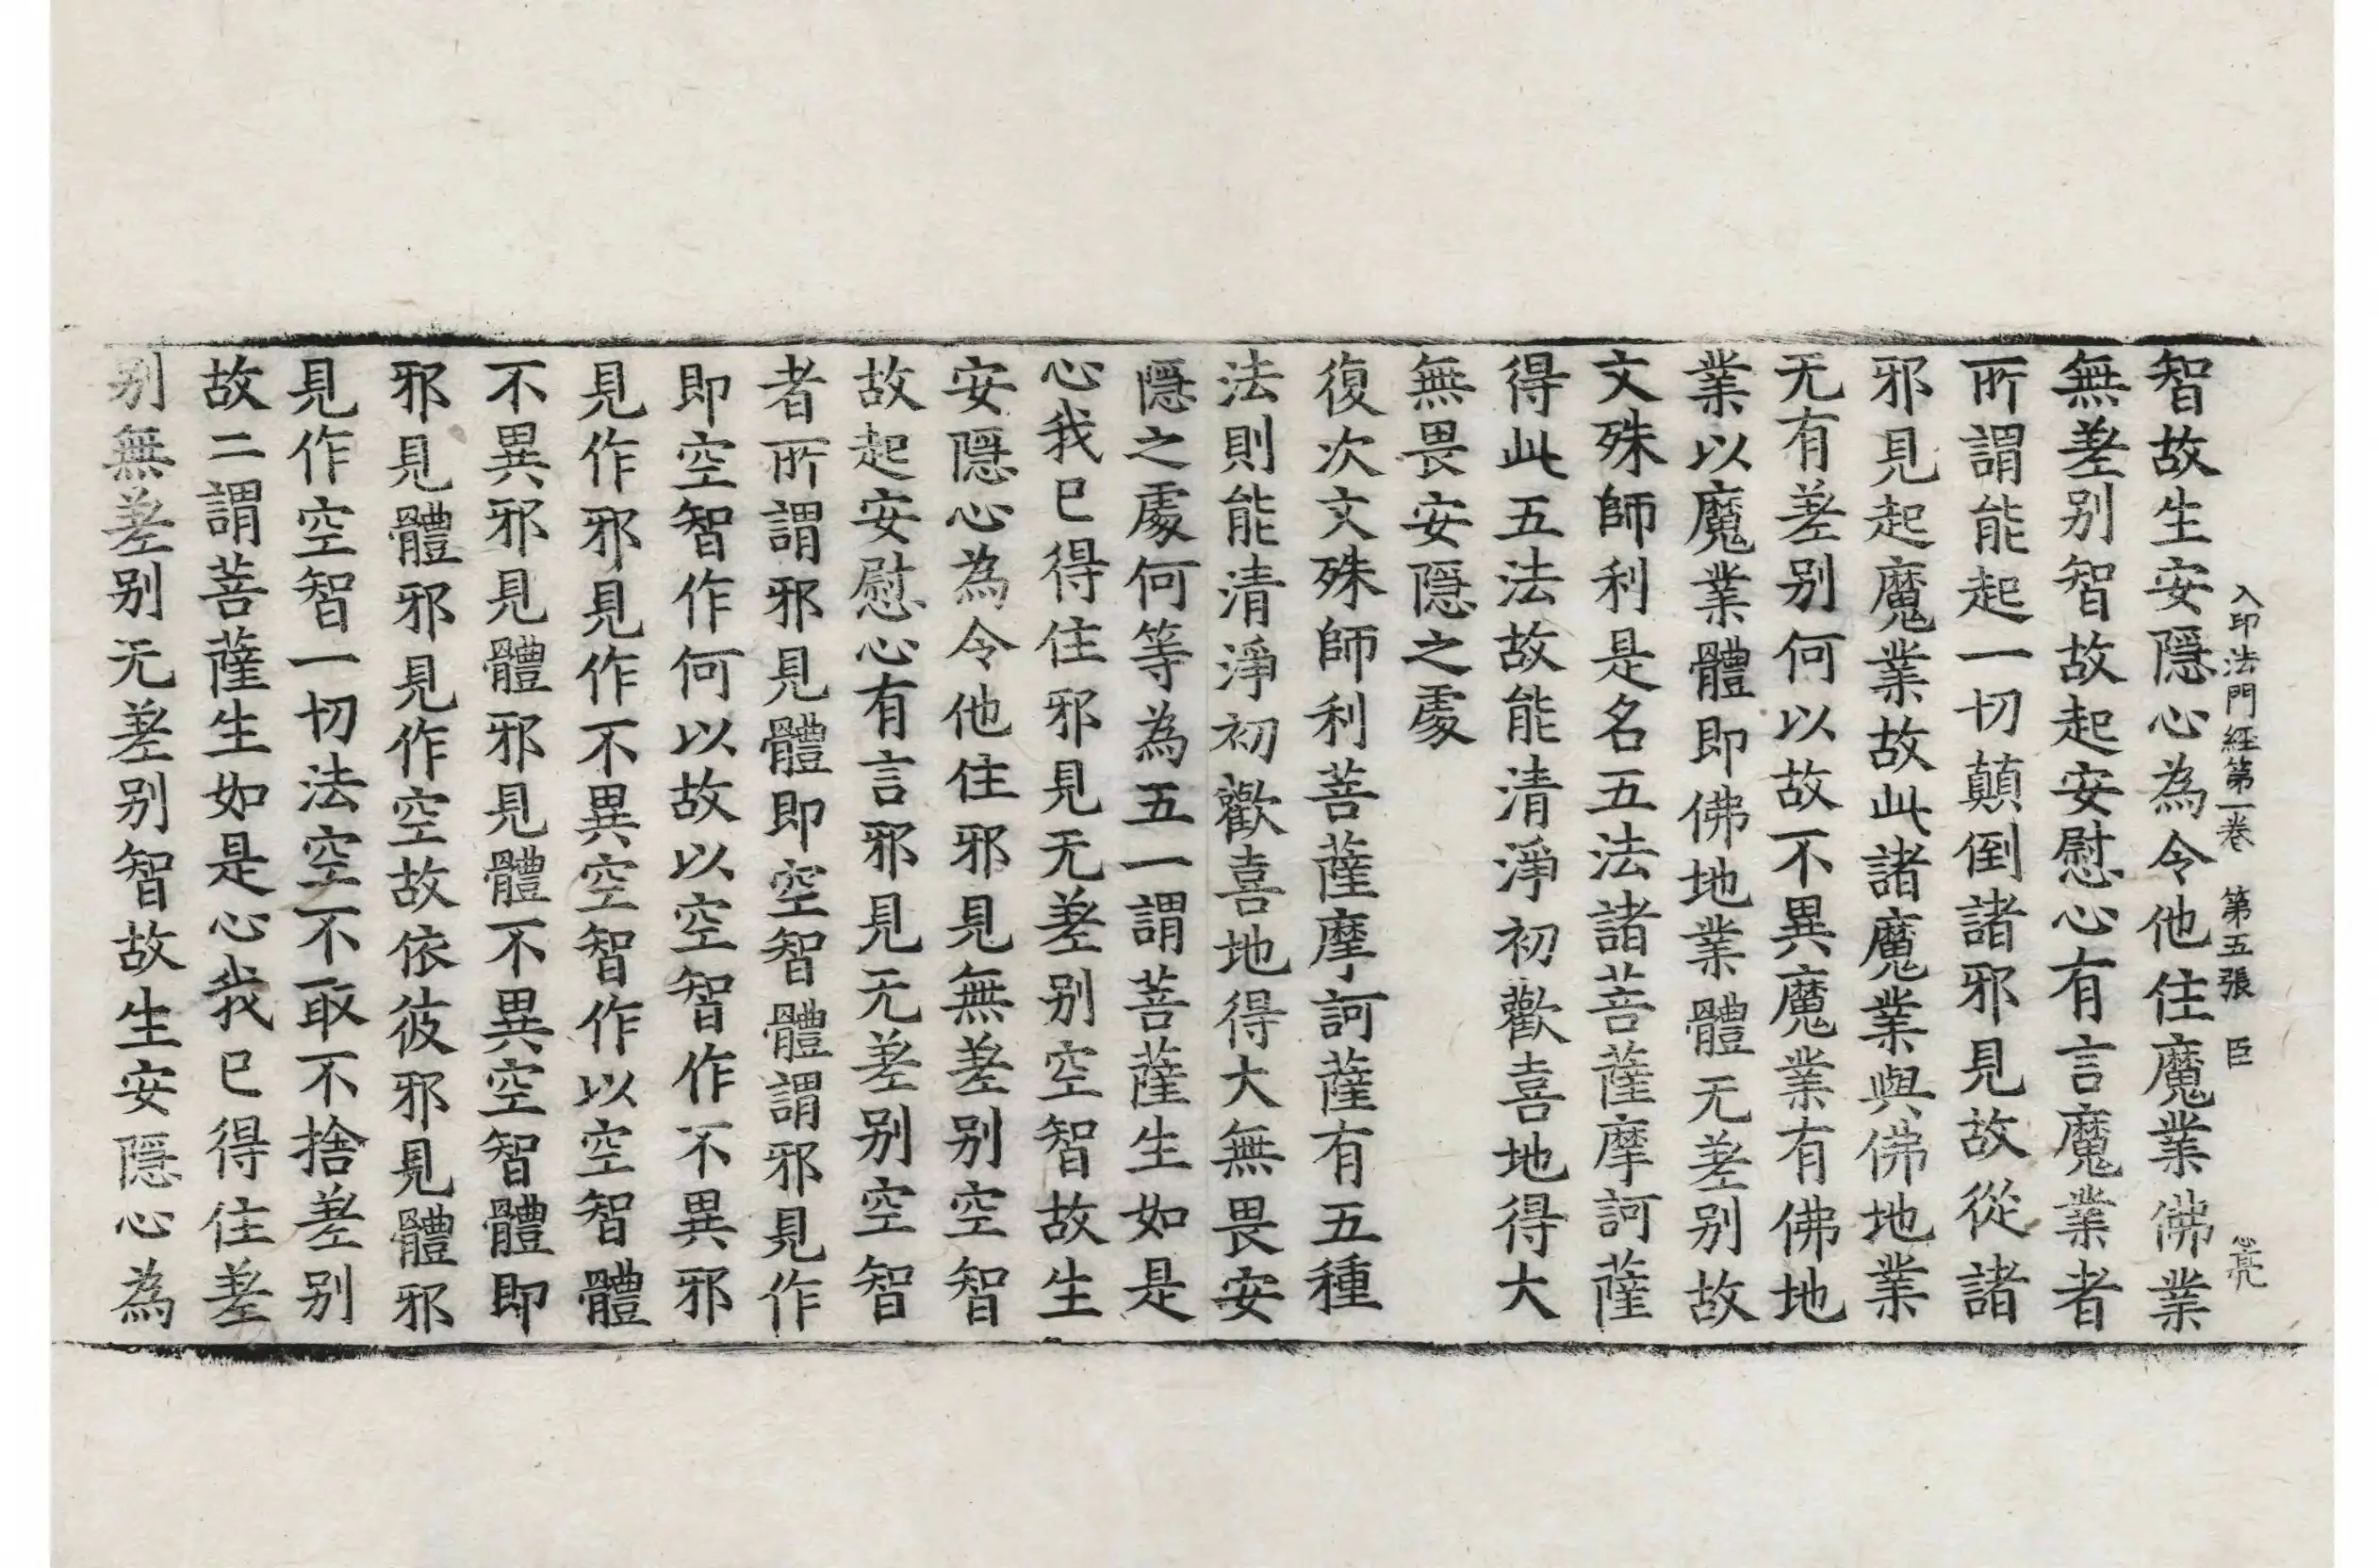 入印法門經第一卷　第五張　臣
智故生安隱心為令他住魔業佛業
無差别智故起安慰心有言魔業者
所謂能起一切顛倒諸邪見故從諸
邪見起魔業故此諸魔業與佛地業
无有差别何以故不異魔業有佛地
業以魔業體即佛地業體无差别故
文殊師利是名五法諸菩薩摩訶薩
得此五法故能清淨初歡喜地得大
無畏安隱之處
復次文殊師利菩薩摩訶薩有五種
法則能清淨初歡喜地得大無畏安
隱之處何等為五一謂菩薩生如是
心我已得住邪見无差别空智故生
安隱心為令他住邪見無差别空智
故起安慰心有言邪見无差别空智
者所謂邪見體即空智體謂邪見作
即空智作何以故以空智作不異邪
見作邪見作不異空智作以空智體
不異邪見體邪見體不異空智體即
邪見體邪見作空故依彼邪見體邪
見作空智一切法空不取不捨差别
故二謂菩薩生如是心我已得住差
别無差别无差别智故生安隱心為